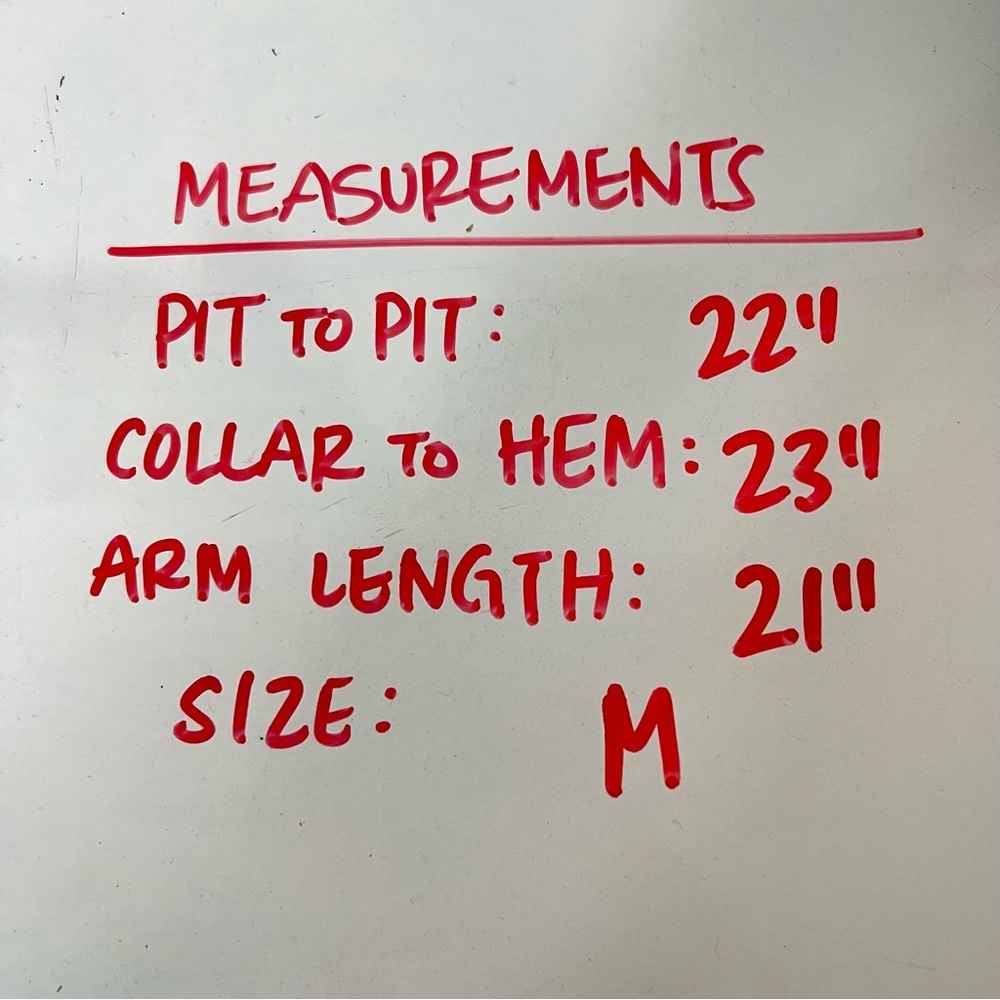 MEASUREMENTS
PIT TO PIT: 22"
COLLAR TO HEM: 23"
ARM LENGTH: 21"
SIZE: M